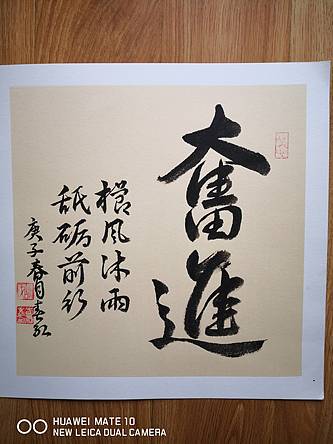 奮進
櫛风沐雨
砥砺前行
庚子春月
HUAWEI MATE 10
NEW LEICA DUAL CAMERA